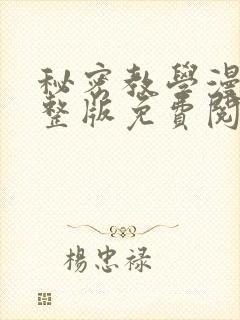 秘密教學漫
整版免費閱
楊忠禄